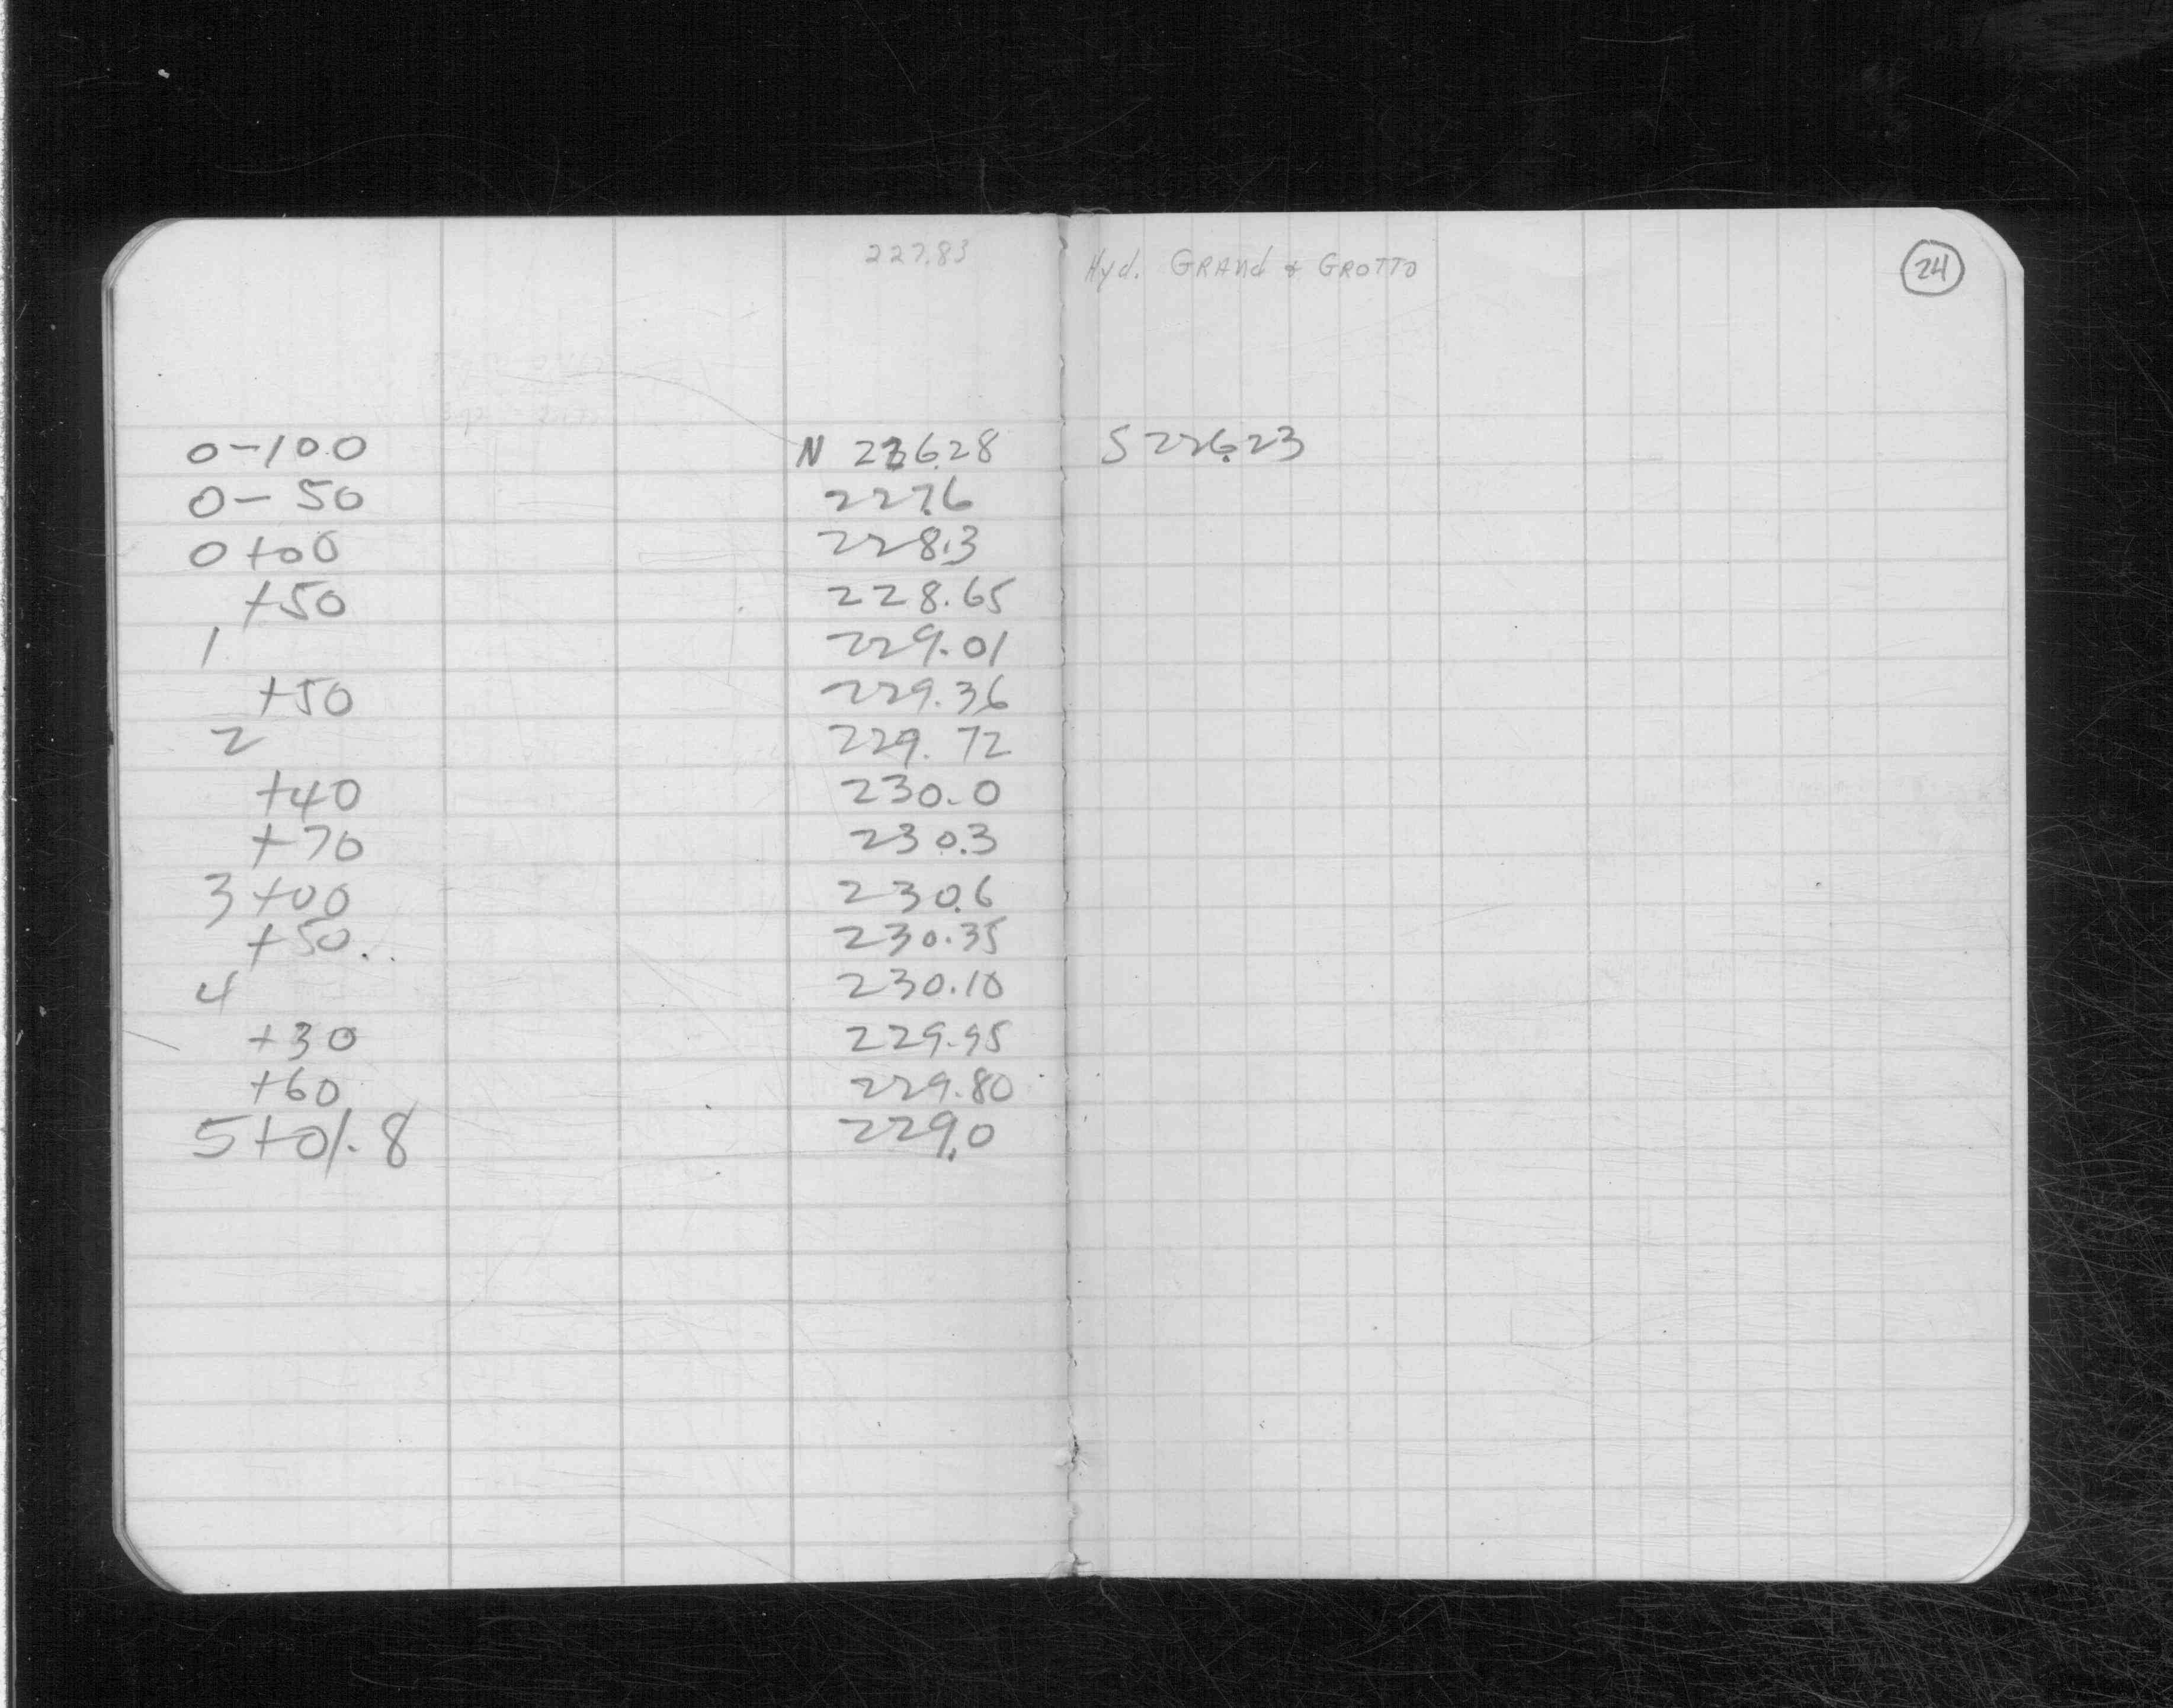 227.83 Hyd. GRANd & GROTTO 24
0-100 N 226.28 S 226.23
0-50 227.6
0+00 228.3
+50 228.65
1 229.01
+50 229.36
2 229.72
+40 230.0
+70 230.3
3+00 230.6
+50 230.35
4 230.10
+30 229.95
+60 229.80
5+01.8 229.0